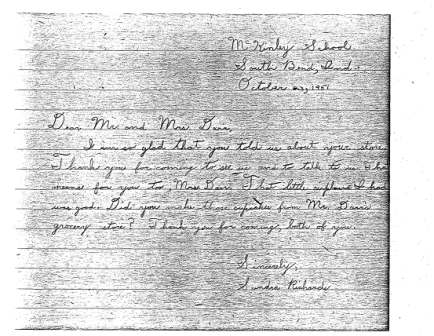 McKinley School
South Bend, Ind.
October 23, 1951
Dear Mr. and Mrs. Davis,
I am so glad that you told us about your store.
Thank you for coming to see us and to talk to us.
for you too, Mrs. Davis. That little cupcake I had
was good. Did you make those cupcakes from Mr. Davis
grocery store? Thank you for coming, both of you.
Sincerely,
Sandra Richards